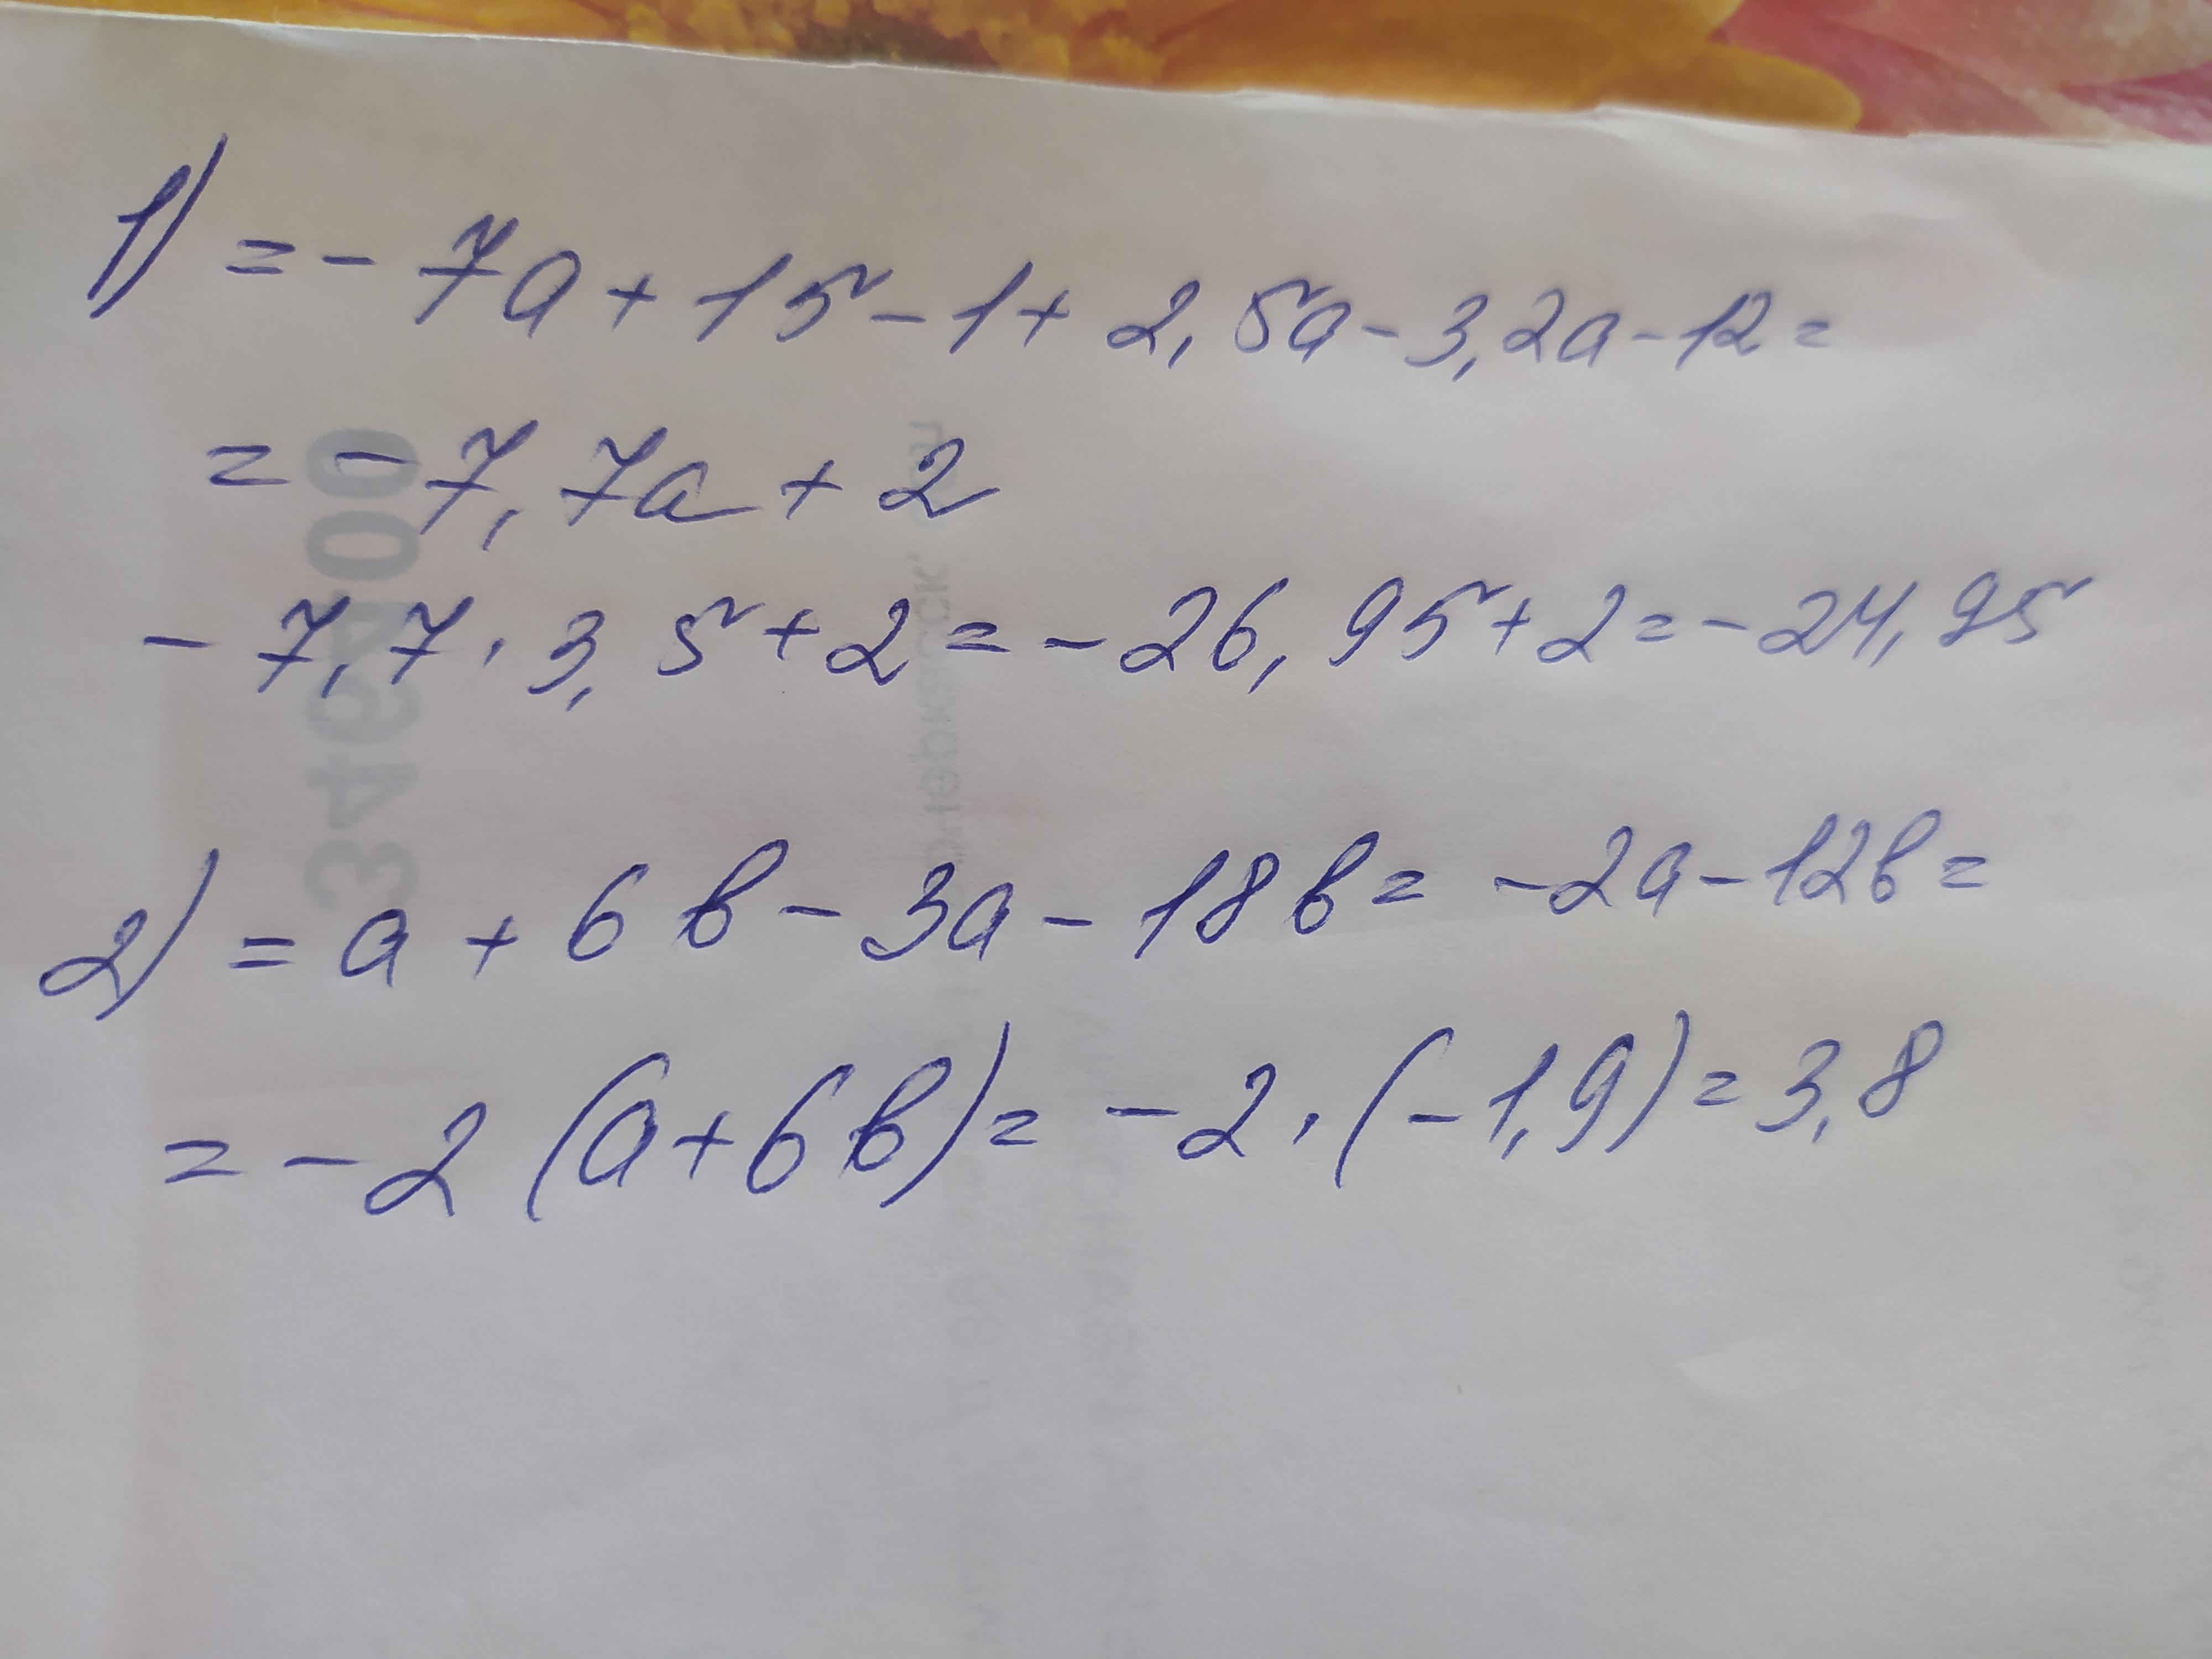 1) = - 7a + 15 - 1 + 2,5a - 3,2a - 12 =
= - 7,7a + 2
- 7,7 · 3,5 + 2 = - 26,95 + 2 = - 24,95
2) = a + 6b - 3a - 18b = - 2a - 12b =
= - 2 (a + 6b) = - 2 · (- 1,9) = 3,8
346400